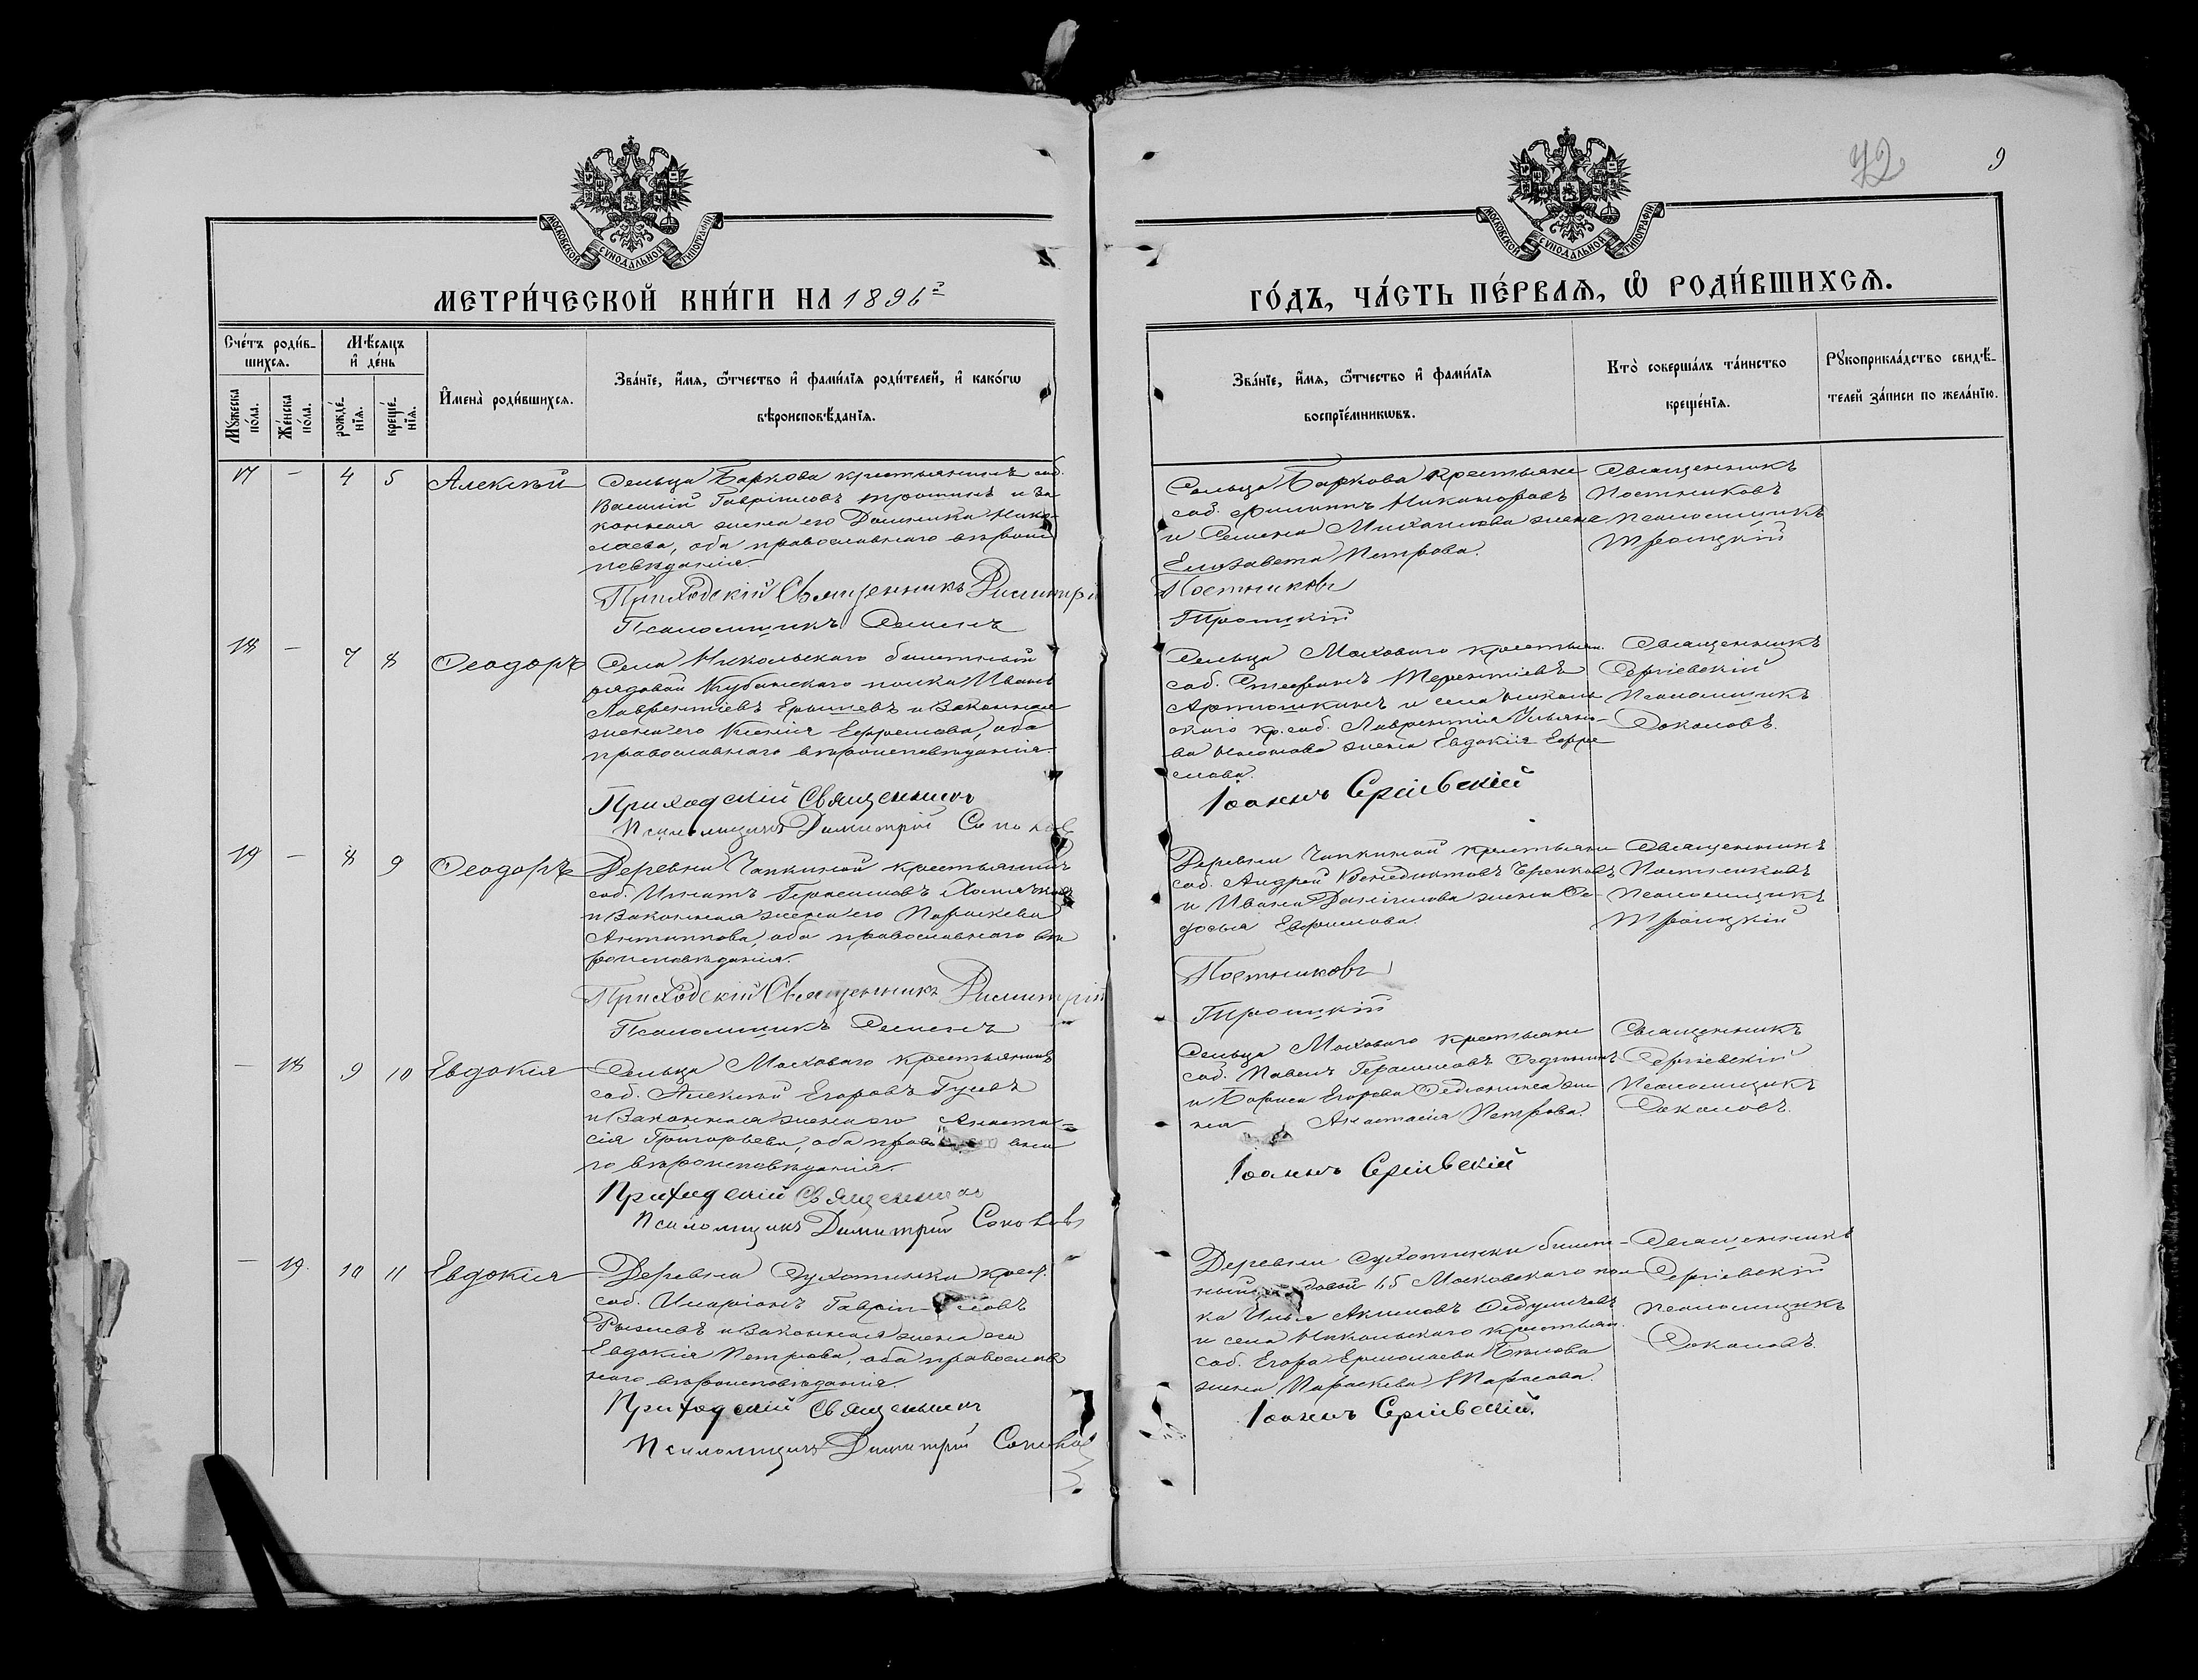 72
9
МОСКОВСКОЙ СУНОДАЛЬНОЙ ТИПОГРАФІИ
МОСКОВСКОЙ СУНОДАЛЬНОЙ ТИПОГРАФІИ
МЕТРИ́ЧЕСКОЙ КНИ́ГИ НА 1896 г
ГО́ДЪ, ЧА́СТЬ ПЕ́РВАѦ, Ѡ РОДИ́ВШИХСѦ.
Сче́тъ роди́в-
шихсѧ.
Мѣ́сѧцъ
и҆ де́нь
Мꙋ́жеска по́ла.
Же́нска по́ла.
рожде́-
нїѧ.
креще́-
нїѧ.
И҆мена̀ роди́вшихсѧ.
Зва́нїе, и҆́мѧ, ѻ҆́тчество и҆ фами́лїѧ роди́телей, и҆ како́гѡ
вѣроисповѣ́данїѧ.
Зва́нїе, и҆́мѧ, ѻ҆́тчество и҆ фами́лїѧ
воспрїе́мникѡвъ.
Кто̀ соверша́лъ та́инство
креще́нїѧ.
Рꙋкоприкла́дство свидѣ́-
телей за́писи по жела́нїю.
17 – 4 5 Алексѣй
Сельца Баркова крестьянинъ соб.
Василій Гавріиловъ и за
конная жена его Нико-
лаева, оба православнаго вѣроис
повѣданія.
Приходскій Священникъ Димитрій
Псаломщикъ Семенъ
Сельца Баркова крестьяне
соб. Филиппъ Никаноровъ
и Семена Михайлова жена
Елизавета Петрова.
Постниковъ
Троицкій
Священникъ
Постниковъ
псаломщикъ
Троицкій
18 – 7 8 Ѳеодоръ
Села Никольскаго билетный
рядовой Кубинскаго полка Иванъ
Лаврентіевъ и законная
жена его Ксенія Ефремова, оба
православнаго вѣроисповѣданія.
Приходскій Священникъ
Псаломщикъ Димитрій Соколовъ
Сельца Моховаго крестьян.
соб. Стефанъ Терентіевъ
Артюшкинъ и села Николь
скаго кр. соб. Лаврентія Ульяно-
ва жена Евдокія Ефре
мова.
Іоаннъ Сергіевскій
Священникъ
Сергіевскій
Псаломщикъ
Соколовъ.
19 – 8 9 Ѳеодоръ
Деревни Чапкиной крестьянинъ
соб. Игнатъ Герасимовъ
и законная жена его Параскева
Антипова, оба православнаго вѣ
роисповѣданія.
Приходскій Священникъ Димитрій
Псаломщикъ Семенъ
Деревни Чапкиной крестьяне
соб. Андрей Венедиктовъ
и Ивана Даніилова жена Ѳе-
досья Ефремова.
Постниковъ
Троицкій
Священникъ
Постниковъ
псаломщикъ
Троицкій
– 18 9 10 Евдокія
Сельца Моховаго крестьянинъ
соб. Алексѣй Егоровъ Гусевъ
и законная жена его Анаста-
сія Григорьева, оба
го вѣроисповѣданія.
Приходскій Священникъ
Псаломщикъ Димитрій Соколовъ
Сельца Моховаго крестьяне
соб. Павелъ Герасимовъ
и Бориса Егорова же
на Анастасія Петрова.
Іоаннъ Сергіевскій
Священникъ
Сергіевскій
Псаломщикъ
Соколовъ.
– 19. 10 11 Евдокія
Деревни Сухотинки крест.
соб. Иларіонъ Гавріиловъ
Рыжевъ и законная жена его
Евдокія Петрова, оба православ
наго вѣроисповѣданія.
Приходскій Священникъ
Псаломщикъ Димитрій Соколовъ
Деревни Сухотинки билет-
ный 65 Московскаго пол
ка Илья Акимовъ
и села Никольскаго крестьян.
соб. Егора Ермолаева Бѣлова
жена Параскева Тарасова.
Іоаннъ Сергіевскій.
Священникъ
Сергіевскій
псаломщикъ
Соколовъ.